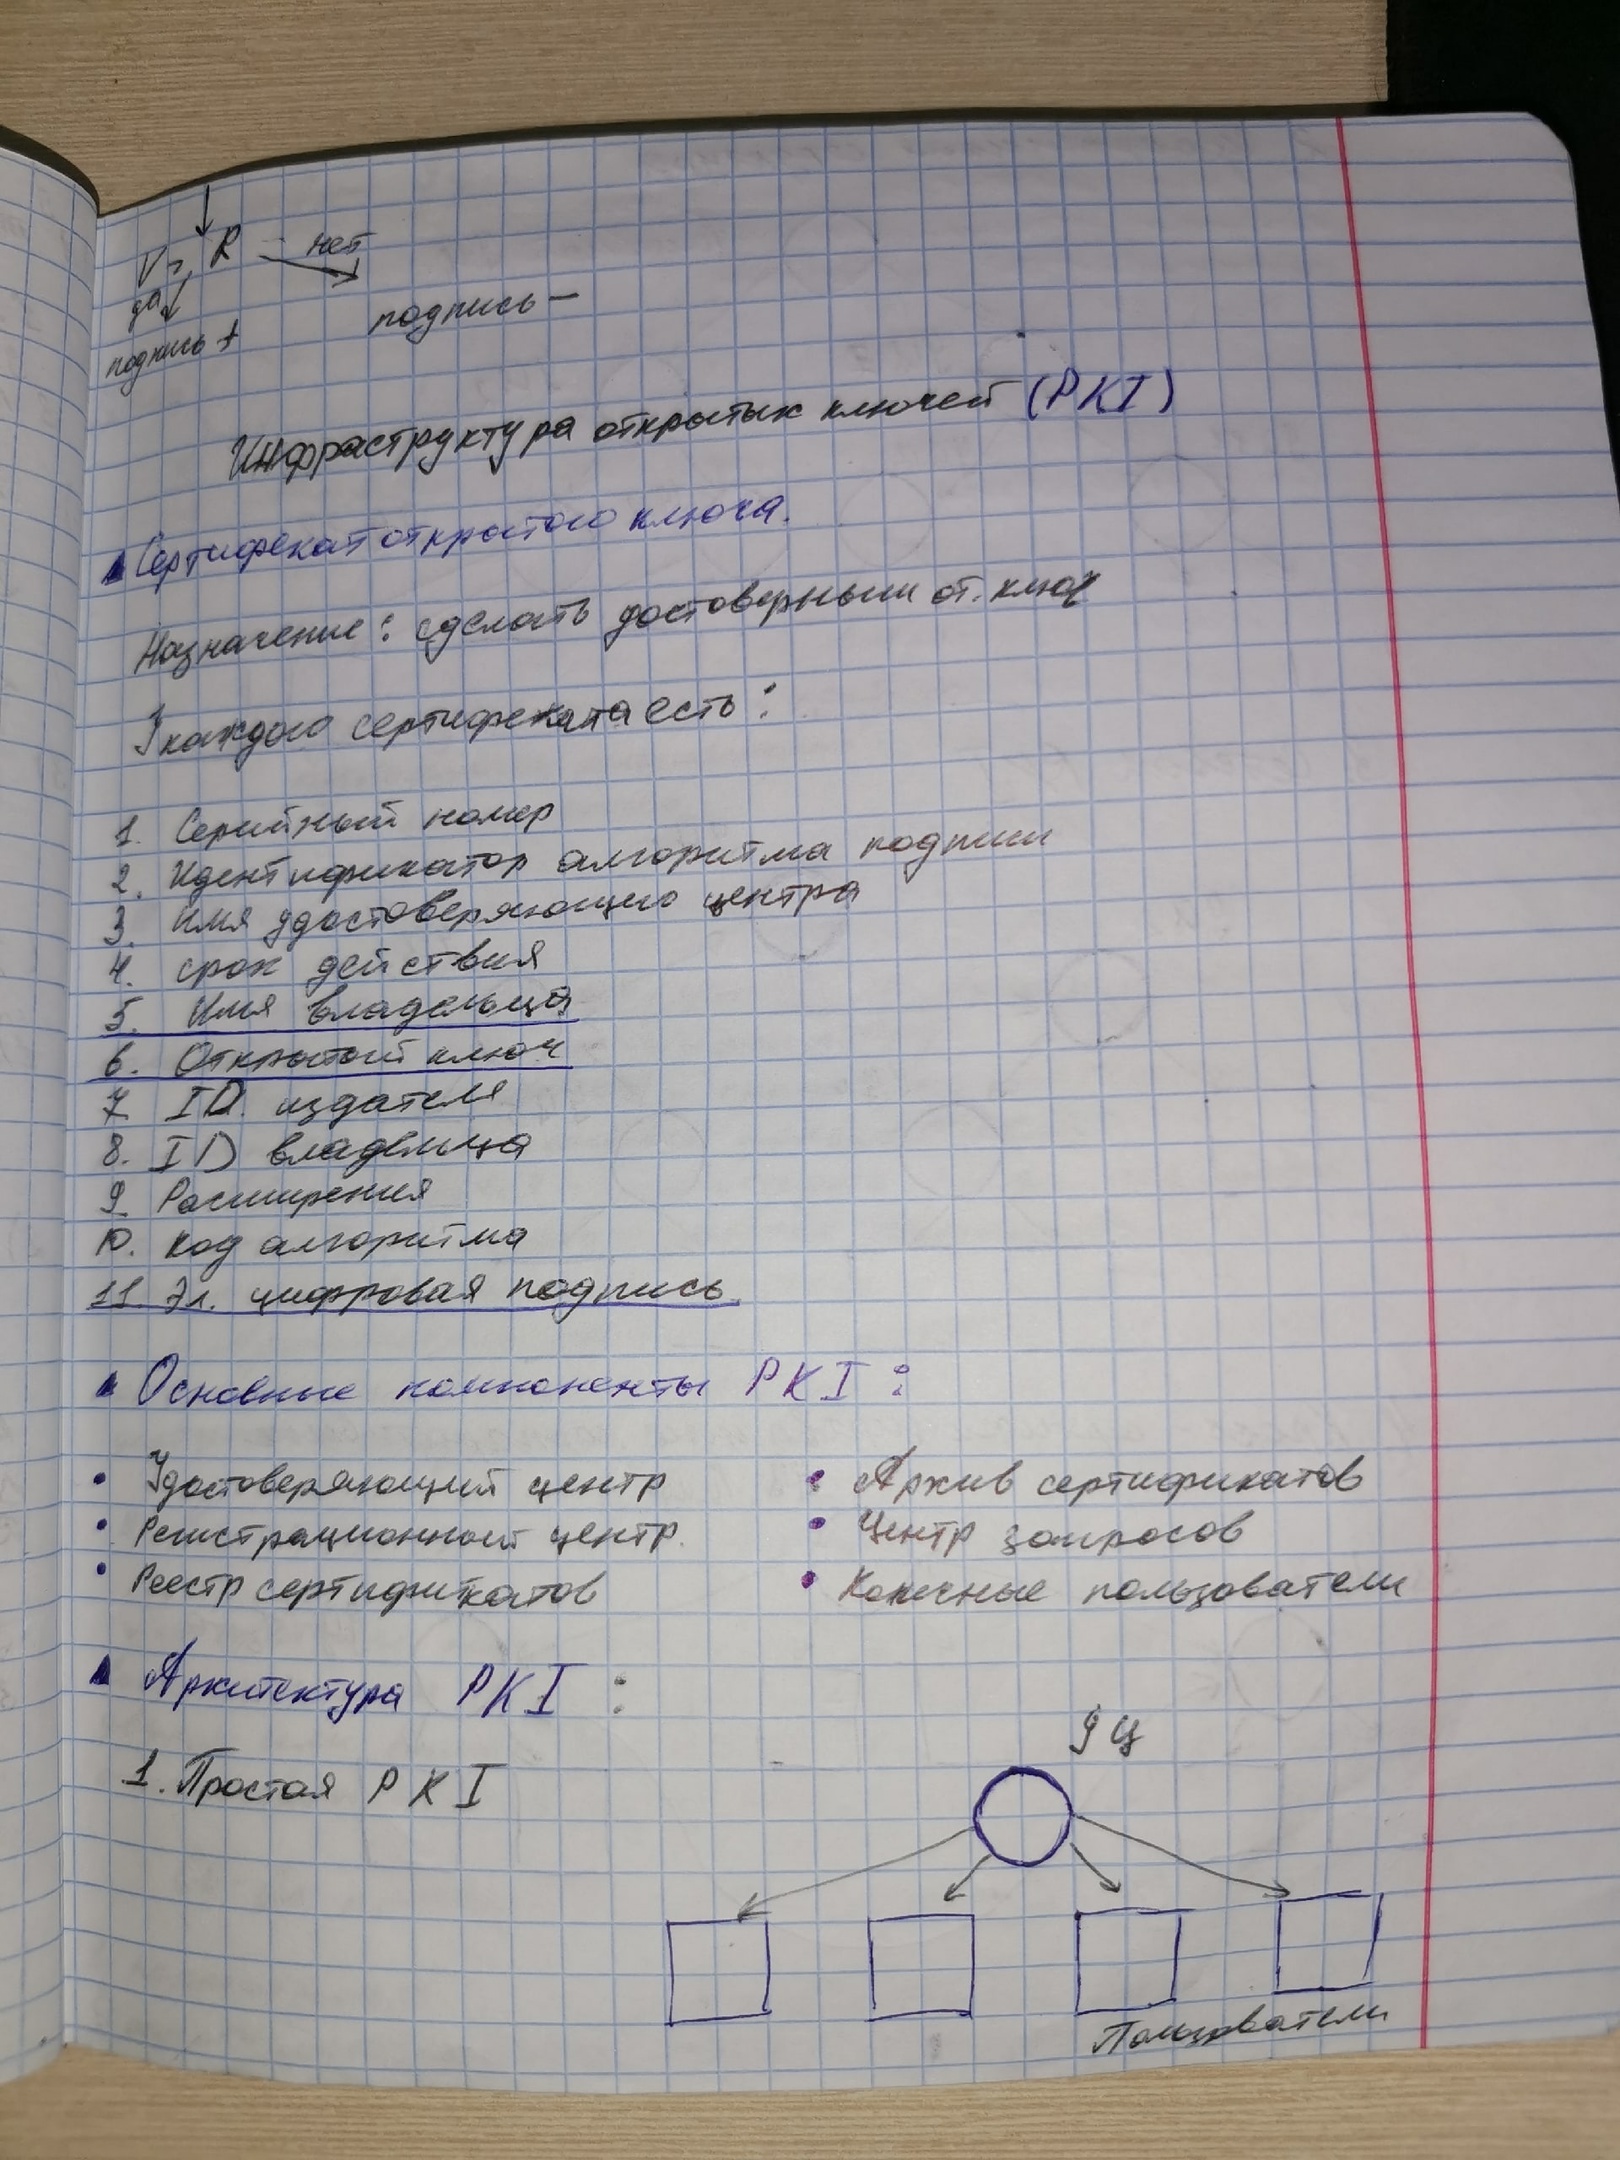 V = R нет
да
подпись + подпись –
Инфраструктура открытых ключей (PKI)
Сертификат открытого ключа.
Назначение: сделать достоверным от. ключ
У каждого сертификата есть:
1. Серийный номер
2. Идентификатор алгоритма подписи
3. Имя удостоверяющего центра
4. срок действия
5. Имя владельца
6. Открытый ключ
7. ID издателя
8. ID владельца
9. Расширения
10. код алгоритма
11. Эл. цифровая подпись.
Основные компоненты PKI:
• Удостоверяющий центр • Архив сертификатов
• Регистрационный центр. • Центр запросов
• Реестр сертификатов • Конечные пользователи
Архитектура PKI:
УЦ
1. Простая PKI
Пользователи